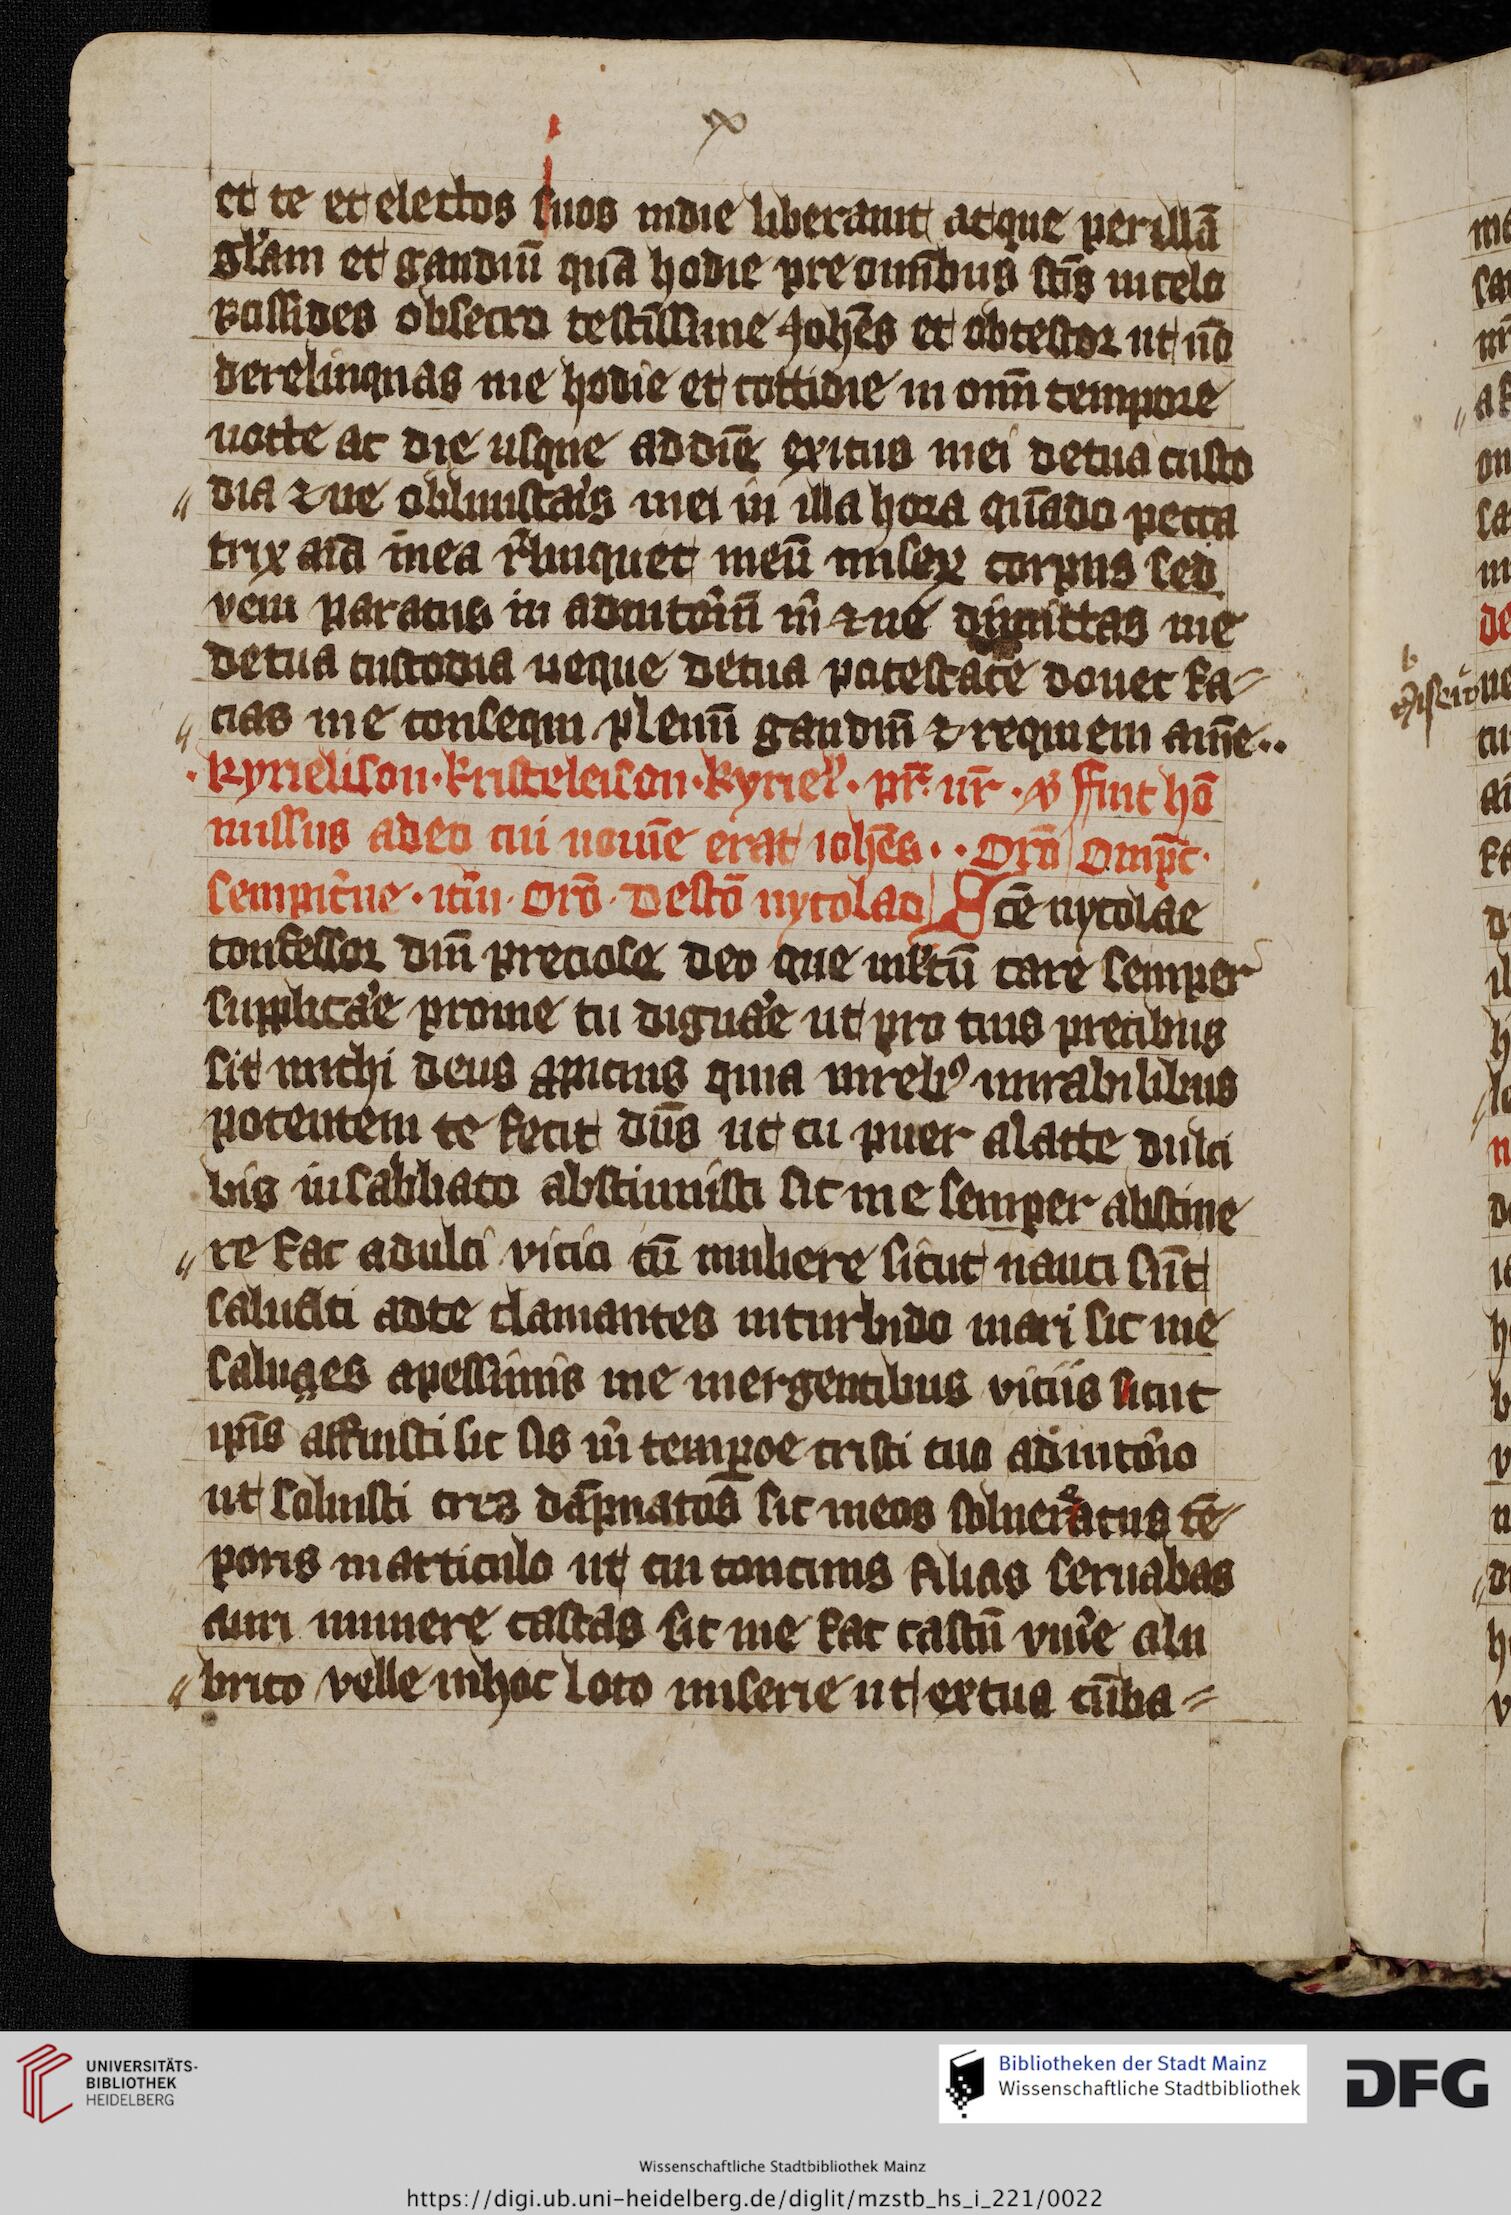 et te et electos suos indie liberauit atque per illā
gl'am et gaudiū quā hodie pre omībus scīs in celo
possides obsecro testissime Johēs et obtestor ut nō
derelinquas me hodie et cottidie in omī tempore
nocte ac die usque ad diē exitus mei de tua custo
dia et ne obliuiscar's mei in illa hora quādo pecca
trix aīa mea r'linquet meū miser corpus sed
veni paratus in adiutor̄iū m̄ et ne dimittas me
de tua custodia neque de tua potestate donec fa=
cias me consequi plenū gaudiū et requiem amē..
.kyrieleison.kristeleison.kyriel'. pr̄. nr̄. v̄s ffuit hō
missus a deo cui nomē erat iohēs.. Orō Omp̄c.
sempit'ne. itm̄. Orō. De scō nycolao Scē nycolae
confessor dn̄i preciose deo que m'ltū care semper
supplicar'e pro me tu dignar'e ut pro tuis precibus
sit michi deus apicius quia mirelis mirabilibus
potentem te fecit dn̄s ut tu puer a lacte dulci
bis in sabbato abstinuisti sic me semper abstine
re fac a dulci vicio cū muliere sicut naute sūt
saluati ad te clamantes in turbido mari sic me
salues a pessimis me mergentibus viciis sicut
ip̄is affuisti sic sis m̄ tempoe tristi tuo adiutor̄io
ut soluisti tres dāpnatos sic meos soluer reatus tē=
poris in articulo ut tui concius filias seruabas
auri munere castas sic me fac castū viu'e a lu
brico velle in hoc loco miserie ut ex tua tūba=
b
UNIVERSITÄTS-
BIBLIOTHEK
HEIDELBERG
Bibliotheken der Stadt Mainz
Wissenschaftliche Stadtbibliothek
DFG
Wissenschaftliche Stadtbibliothek Mainz
https://digi.ub.uni-heidelberg.de/diglit/mzstb_hs_i_221/0022